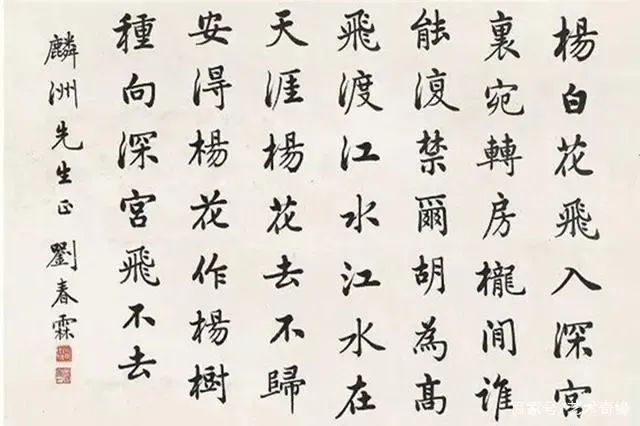 楊白花飛入深宮
裏宛轉房櫳間誰
能復禁爾胡為高
飛渡江水江水在
天涯楊花去不歸
安得楊花作楊樹
種向深宮飛不去
麟洲先生正 劉春霖
百家号/艺术奇缘